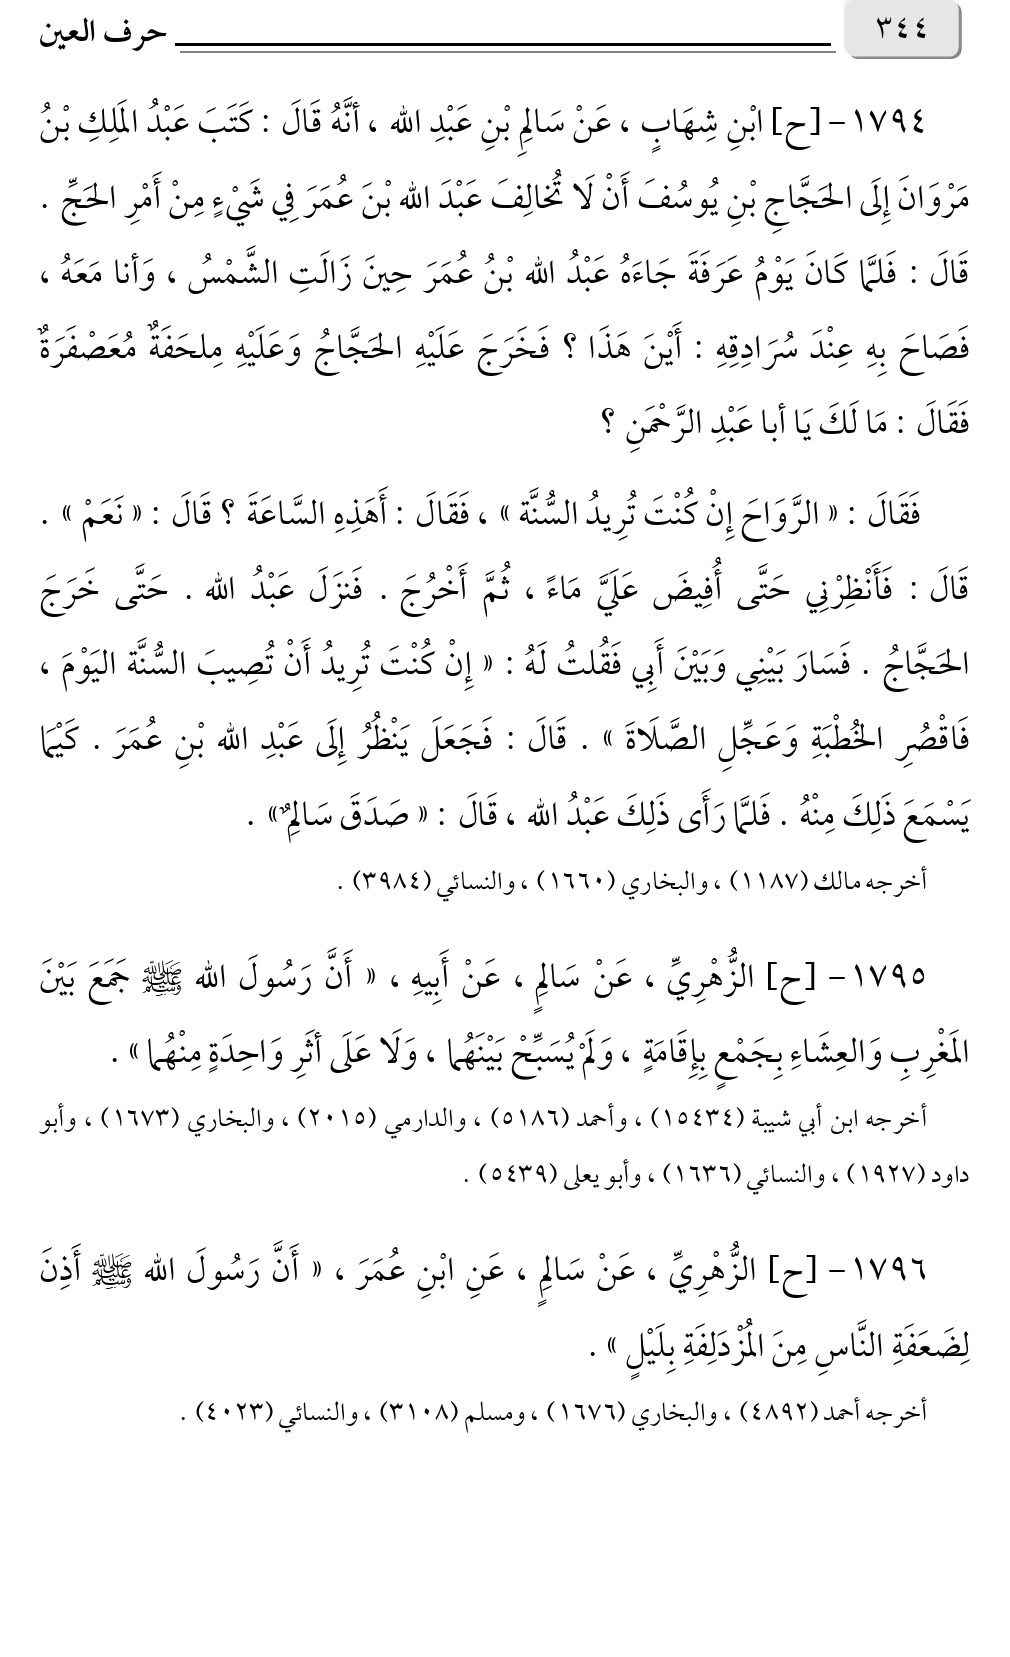 ٣٤٤ حرف العين
١٧٩٤- [ح] ابْنِ شِهَابٍ ، عَنْ سَالِمِ بْنِ عَبْدِ الله ، أنَّهُ قَالَ : كَتَبَ عَبْدُ المَلِكِ بْنُ
مَرْوَانَ إِلَى الحَجَّاجِ بْنِ يُوسُفَ أَنْ لَا تُخالِفَ عَبْدَ الله بْنَ عُمَرَ فِي شَيْءٍ مِنْ أَمْرِ الحَجِّ .
قَالَ : فَلمَّا كَانَ يَوْمُ عَرَفَةَ جَاءَهُ عَبْدُ الله بْنُ عُمَرَ حِينَ زَالَتِ الشَّمْسُ ، وَأنا مَعَهُ ،
فَصَاحَ بِهِ عِنْدَ سُرَادِقِهِ : أَيْنَ هَذَا ؟ فَخَرَجَ عَلَيْهِ الحَجَّاجُ وَعَلَيْهِ مِلحَفَةٌ مُعَصْفَرَةٌ
فَقَالَ : مَا لَكَ يَا أبا عَبْدِ الرَّحْمَنِ ؟
فَقَالَ : « الرَّوَاحَ إِنْ كُنْتَ تُرِيدُ السُّنَّة » ، فَقَالَ : أَهَذِهِ السَّاعَةَ ؟ قَالَ : « نَعَمْ » .
قَالَ : فَأَنْظِرْنِي حَتَّى أُفِيضَ عَلَيَّ مَاءً ، ثُمَّ أَخْرُجَ . فَنزَلَ عَبْدُ الله . حَتَّى خَرَجَ
الحَجَّاجُ . فَسَارَ بَيْنِي وَبَيْنَ أَبِي فَقُلتُ لَهُ : « إِنْ كُنْتَ تُرِيدُ أَنْ تُصِيبَ السُّنَّة اليَوْمَ ،
فَاقْصُرِ الخُطْبَةِ وَعَجِّلِ الصَّلَاةَ » . قَالَ : فَجَعَلَ يَنْظُرُ إِلَى عَبْدِ الله بْنِ عُمَرَ . كَيْمَا
يَسْمَعَ ذَلِكَ مِنْهُ . فَلمَّا رَأَى ذَلِكَ عَبْدُ الله ، قَالَ : « صَدَقَ سَالِمٌ» .
أخرجه مالك (١١٨٧) ، والبخاري (١٦٦٠) ، والنسائي (٣٩٨٤) .
١٧٩٥- [ح] الزُّهْرِيِّ ، عَنْ سَالِمٍ ، عَنْ أَبِيهِ ، « أَنَّ رَسُولَ الله ﷺ جَمَعَ بَيْنَ
المَغْرِبِ وَالعِشَاءِ بِجَمْعٍ بِإِقَامَةٍ ، وَلَمْ يُسَبِّحْ بَيْنَهُما ، وَلَا عَلَى أثَرِ وَاحِدَةٍ مِنْهُما » .
أخرجه ابن أبي شيبة (١٥٤٣٤) ، وأحمد (٥١٨٦) ، والدارمي (٢٠١٥) ، والبخاري (١٦٧٣) ، وأبو
داود (١٩٢٧) ، والنسائي (١٦٣٦) ، وأبو يعلى (٥٤٣٩) .
١٧٩٦- [ح] الزُّهْرِيِّ ، عَنْ سَالِمٍ ، عَنِ ابْنِ عُمَرَ ، « أَنَّ رَسُولَ الله ﷺ أَذِنَ
لِضَعَفَةِ النَّاسِ مِنَ المُزْدَلِفَةِ بِلَيْلٍ » .
أخرجه أحمد (٤٨٩٢) ، والبخاري (١٦٧٦) ، ومسلم (٣١٠٨) ، والنسائي (٤٠٢٣) .